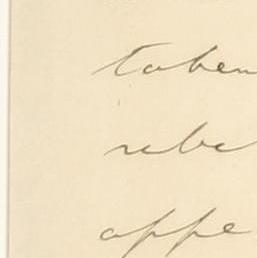 taken
rebe
appe